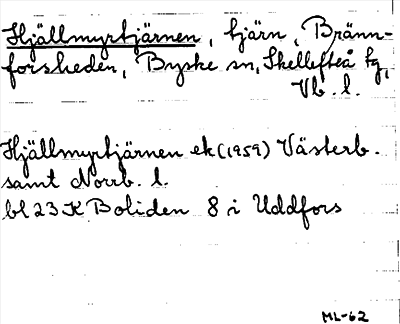 Hjällmyrtjärnen, tjärn, Bränn-
forsheden, Byske sn, Skellefteå tg,
Vb. l.
Hjällmyrtjärnen ek (1959) Västerb.
samt Norrb. l.
bl 23 K Boliden 8 i Uddfors
ML-62